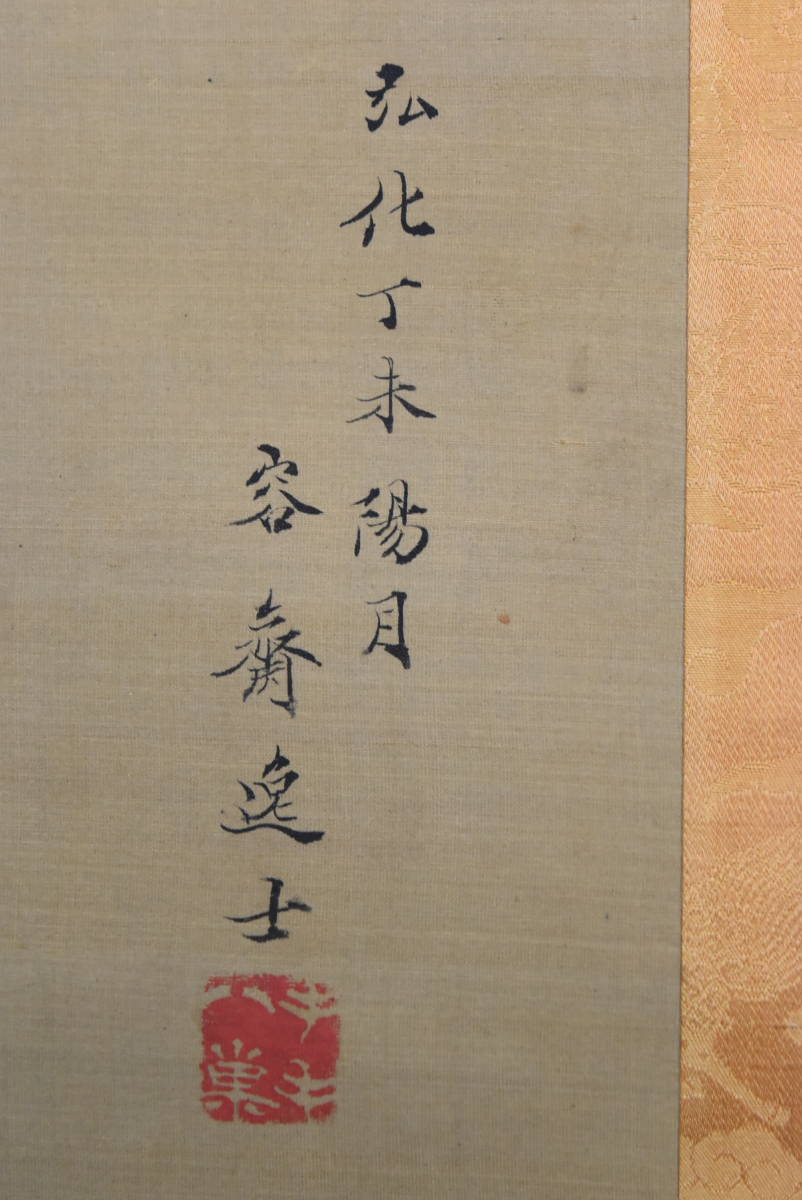 弘化丁未陽月
容齋逸士